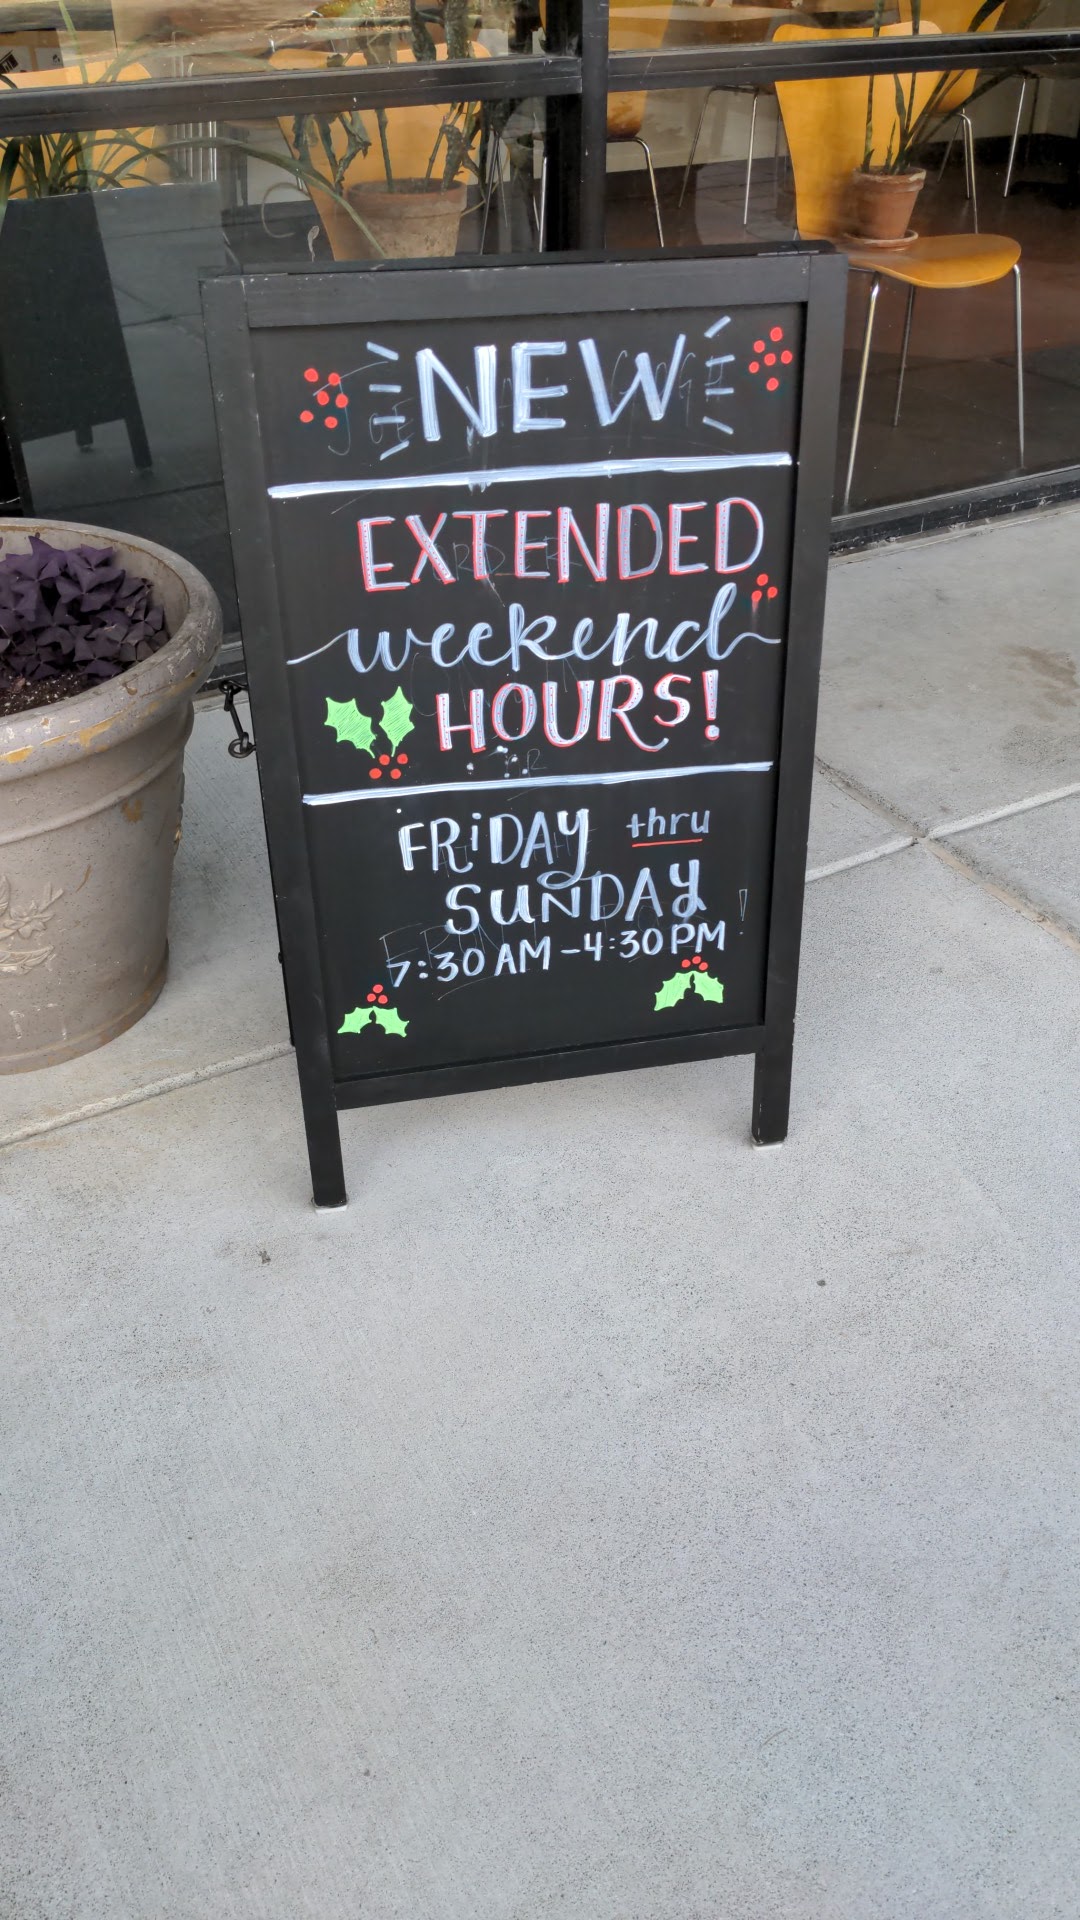 NEW
EXTENDED
weekend
HOURS!
FRiDAY thru
SUNDAY
7:30 AM - 4:30 PM